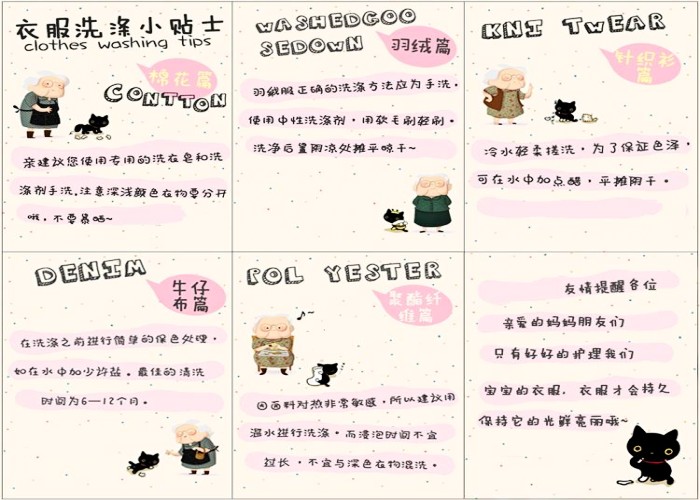 衣服洗涤小贴士
clothes washing tips
棉花篇
CONTTON
亲建议您使用专用的洗衣皂和洗
涤剂手洗,注意深浅颜色衣物要分开
哦,不要暴晒~
WASHEDGOO
SEDOWN
羽绒篇
羽绒服正确的洗涤方法应为手洗,
使用中性洗涤剂,用软毛刷轻刷,
洗净后置阴凉处摊平晾干~
KNI TWEAR
针织衫
篇
冷水轻柔搓洗,为了保证色泽,
可在水中加点醋,平摊阴干。
DENIM
牛仔
布篇
在洗涤之前进行简单的保色处理,
如在水中加少许盐。最佳的清洗
时间为6—12个月。
POL YESTER
聚酯纤
维篇
因面料对热非常敏感,所以建议用
温水进行洗涤。而浸泡时间不宜
过长,不宜与深色衣物混洗。
友情提醒各位
亲爱的妈妈朋友们
只有好好的护理我们
宝宝的衣服,衣服才会持久
保持它的光鲜亮丽哦~